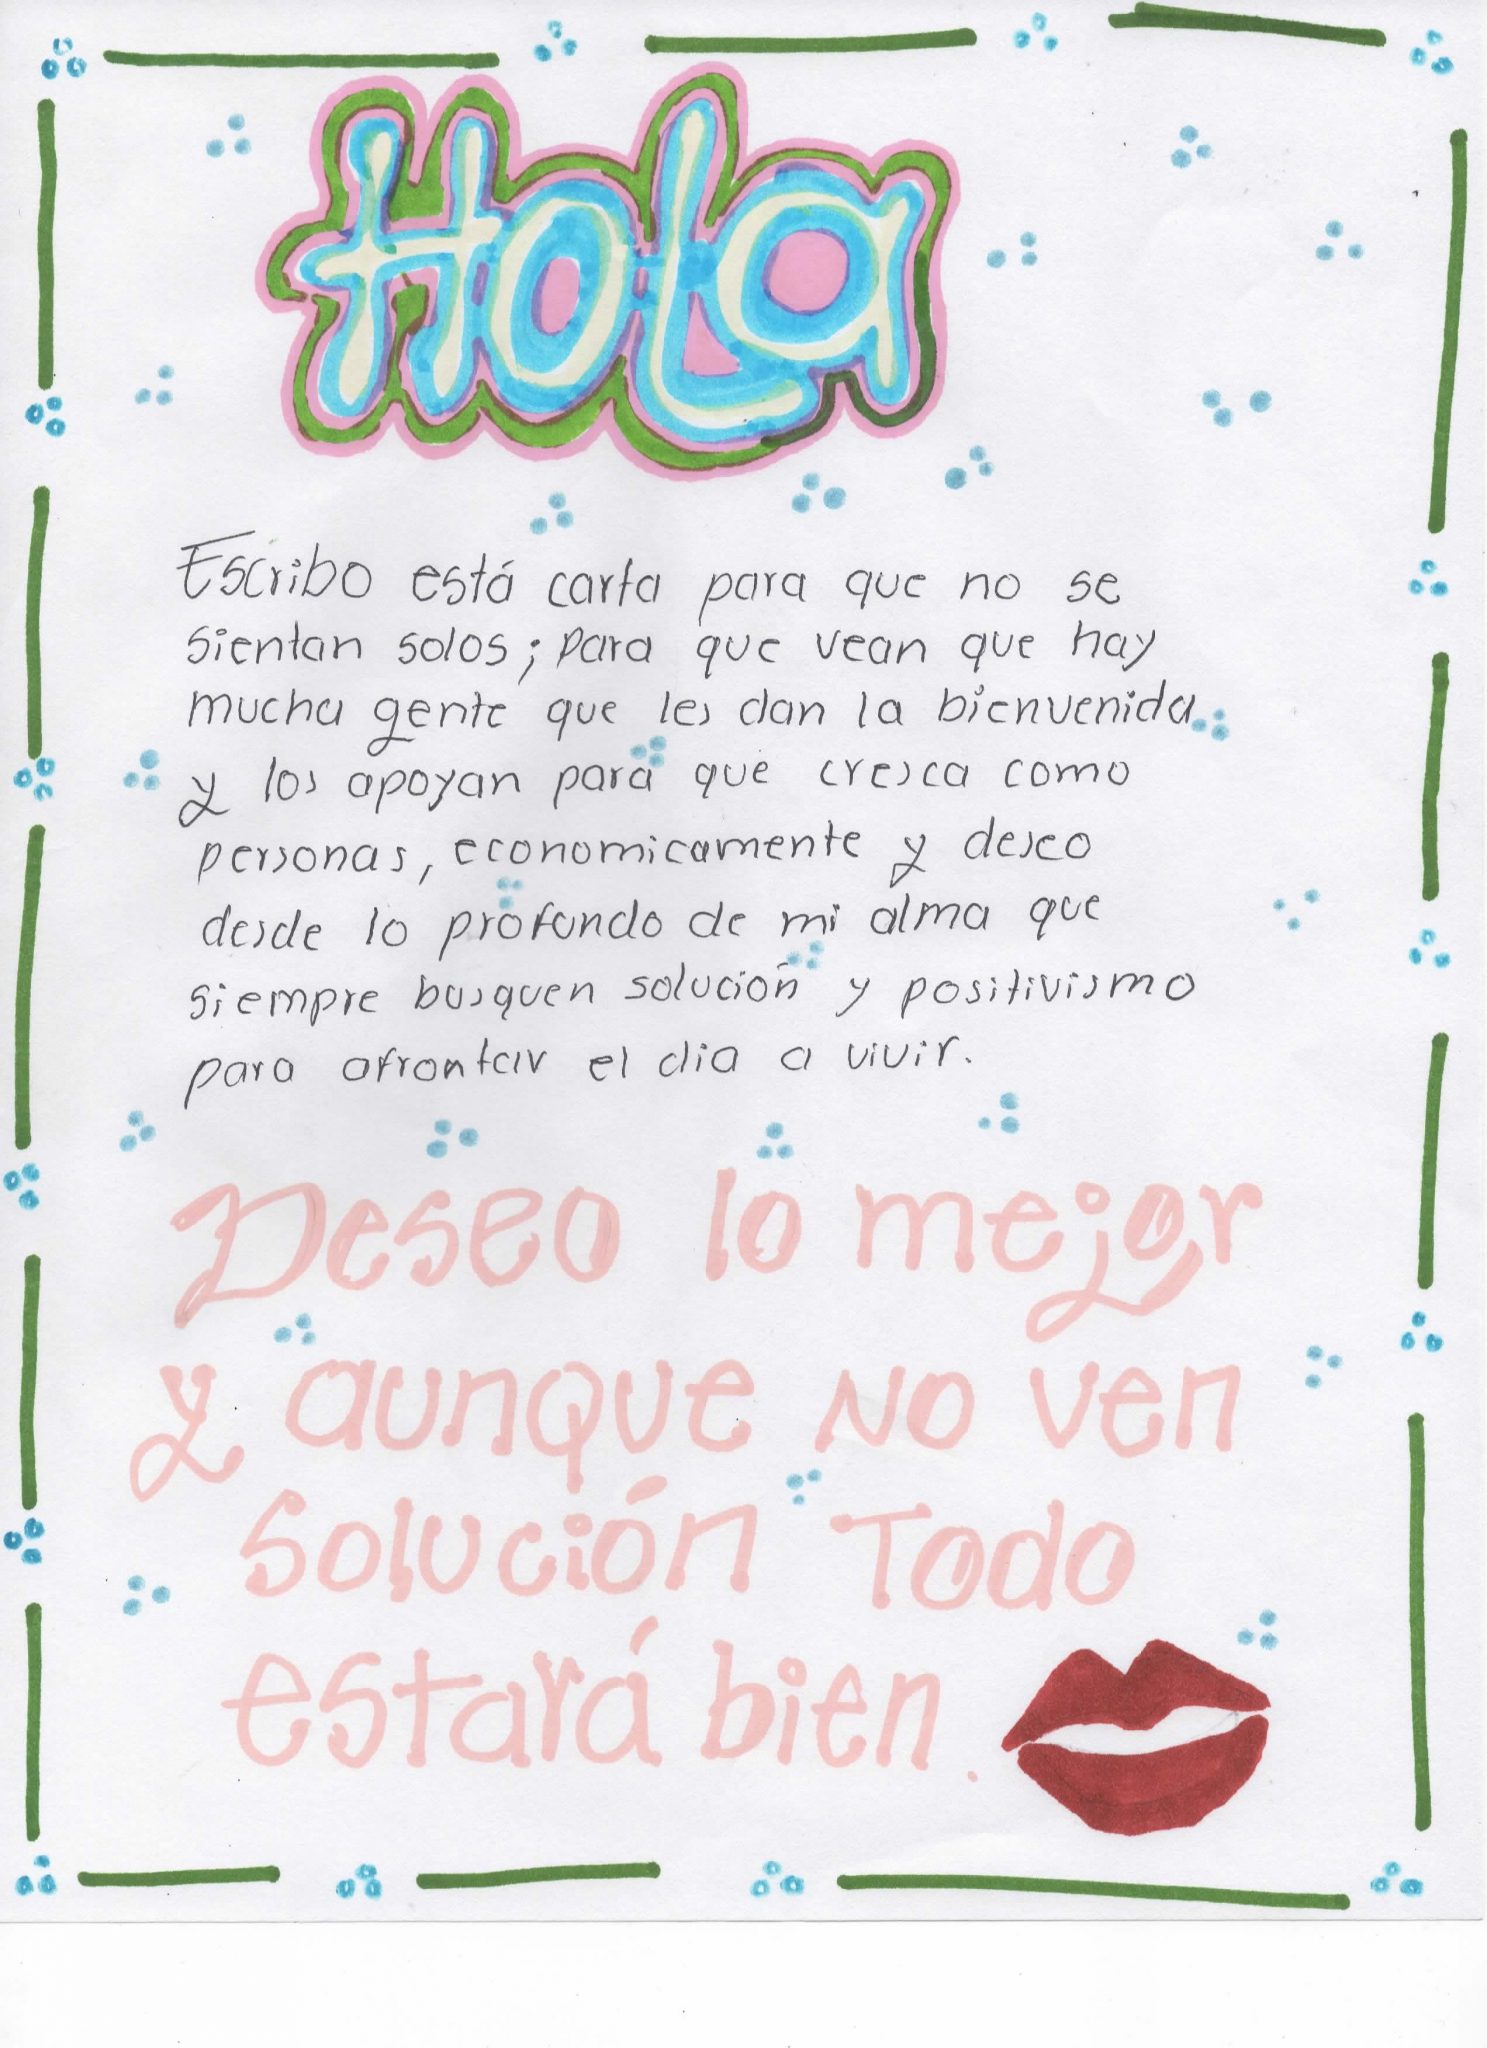 HoLa
Escribo está carta para que no se
sientan solos; para que vean que hay
mucha gente que les dan la bienvenida
y los apoyan para que cresca como
personas, economicamente y deseo
desde lo profundo de mi alma que
siempre busquen solución y positivismo
para afrontar el dia a vivir.
Deseo lo mejor
y aunque no ven
solución Todo
estará bien.